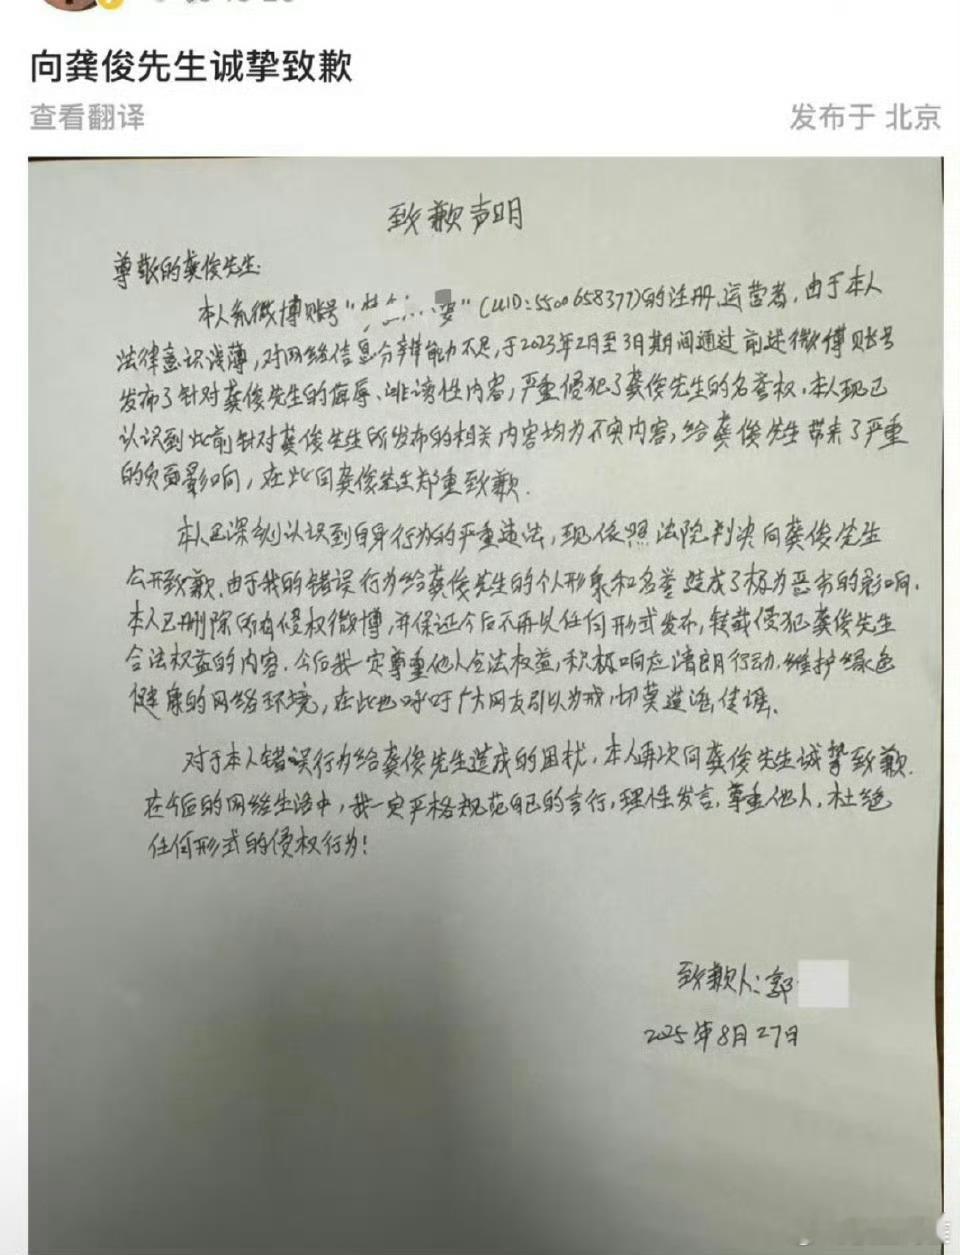 向龚俊先生诚挚致歉
查看翻译
发布于 北京
致歉声明
尊敬的龚俊先生:
本人系微博账号"婆"(UID:5500658377)的注册、运营者,由于本人
法律意识浅薄,对网络信息分辨能力不足,于2023年2月至3月期间通过前述微博账号
发布了针对龚俊先生的侮辱、诽谤性内容,严重侵犯了龚俊先生的名誉权.本人现已
认识到此前针对龚俊先生所发布的相关内容均为不实内容,给龚俊先生带来了严重
的负面影响,在此向龚俊先生郑重致歉.
本人已深刻认识到自身行为的严重违法,现依照法院判决向龚俊先生
公开致歉.由于我的错误行为给龚俊先生的个人形象和名誉造成了极为恶劣的影响.
本人已删除所有侵权微博,并保证今后不再以任何形式发布,转载侵犯龚俊先生
合法权益的内容.今后我一定尊重他人合法权益,积极响应清朗行动,维护绿色
健康的网络环境,在此也呼吁广大网友引以为戒,切莫造谣传谣.
对于本人错误行为给龚俊先生造成的困扰,本人再次向龚俊先生诚挚致歉.
在今后的网络生活中,我一定严格规范自己的言行,理性发言,尊重他人,杜绝
任何形式的侵权行为!
致歉人:郭
2025年8月27日